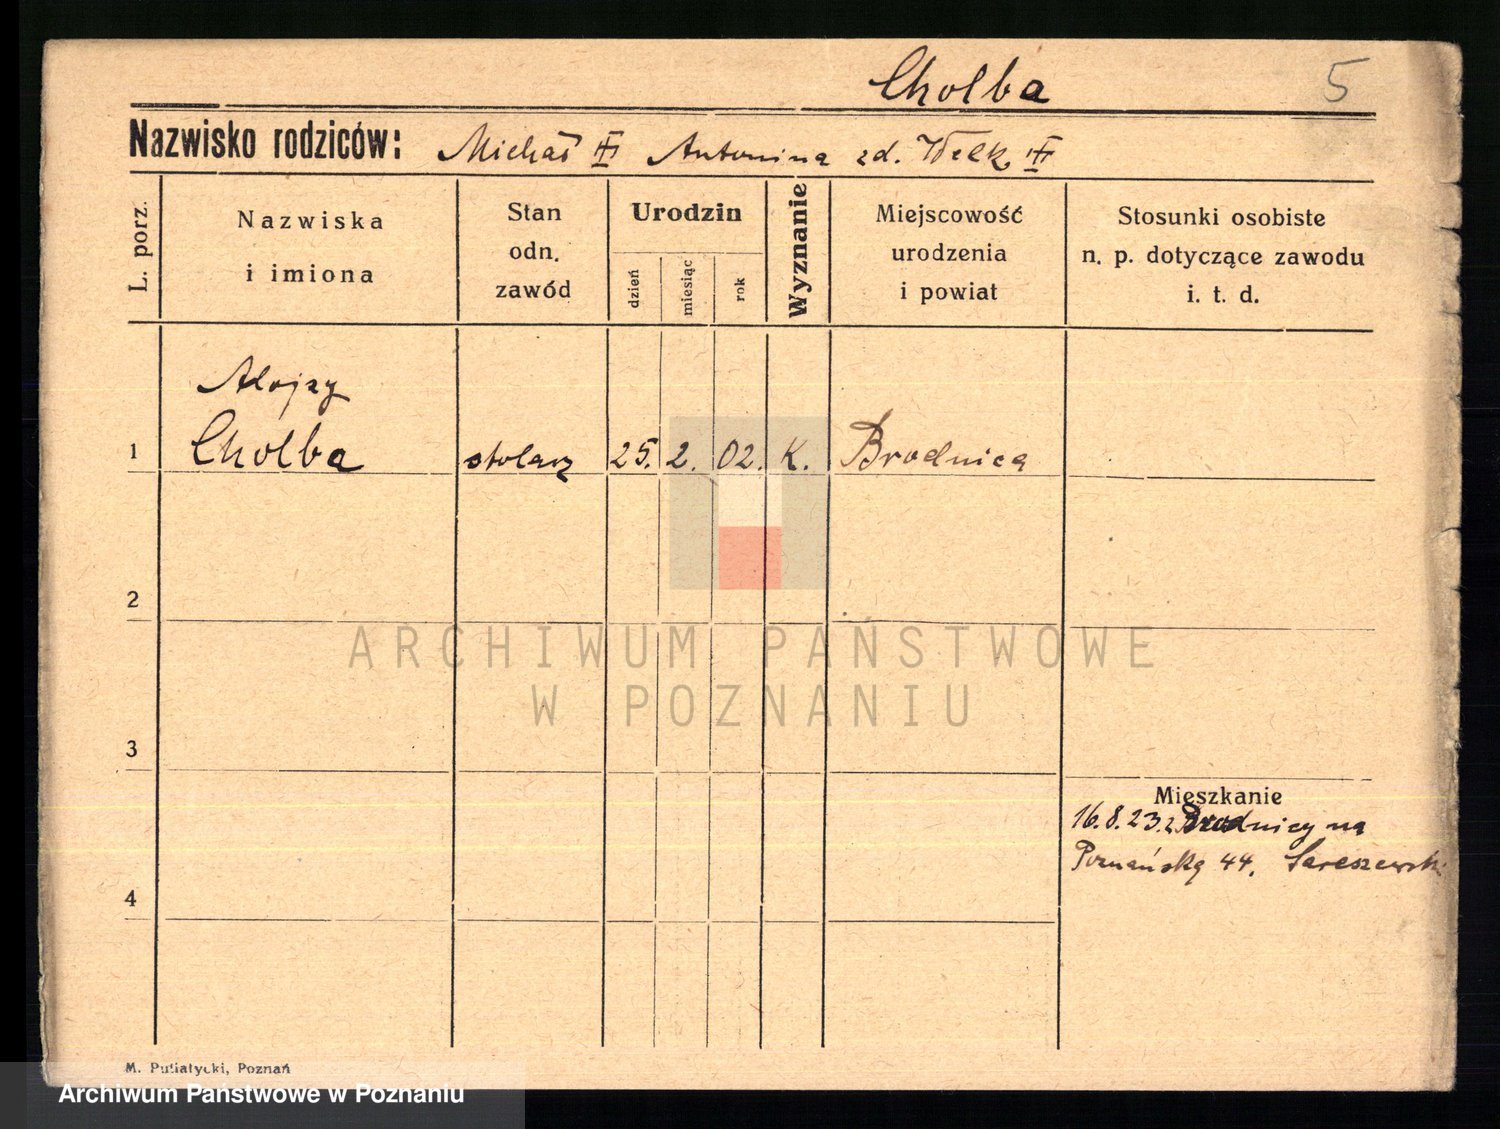 Cholba 5
Nazwisko rodziców: Michał Antonina zd.
L. porz.
Nazwiska
i imiona
Stan
odn.
zawód
Urodzin
dzień miesiąc rok
Wyznanie
Miejscowość
urodzenia
i powiat
Stosunki osobiste
n. p. dotyczące zawodu
i. t. d.
Alojzy
1 Cholba stolarz 25. 2. 02. K. Brodnica
2
ARCHIWUM PAŃSTWOWE
W POZNANIU
3
Mieszkanie
16.8.23. z Brodnicy na
Poznańską 44.
4
M. Putiatycki, Poznań
Archiwum Państwowe w Poznaniu